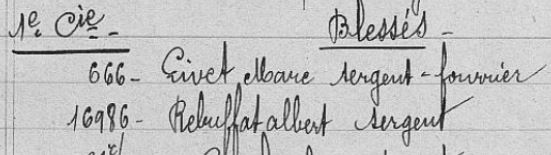 1e. Cie. - Blessés -
666 - Givet Marc sergent - fourrier
16986 - Rebuffat albert sergent